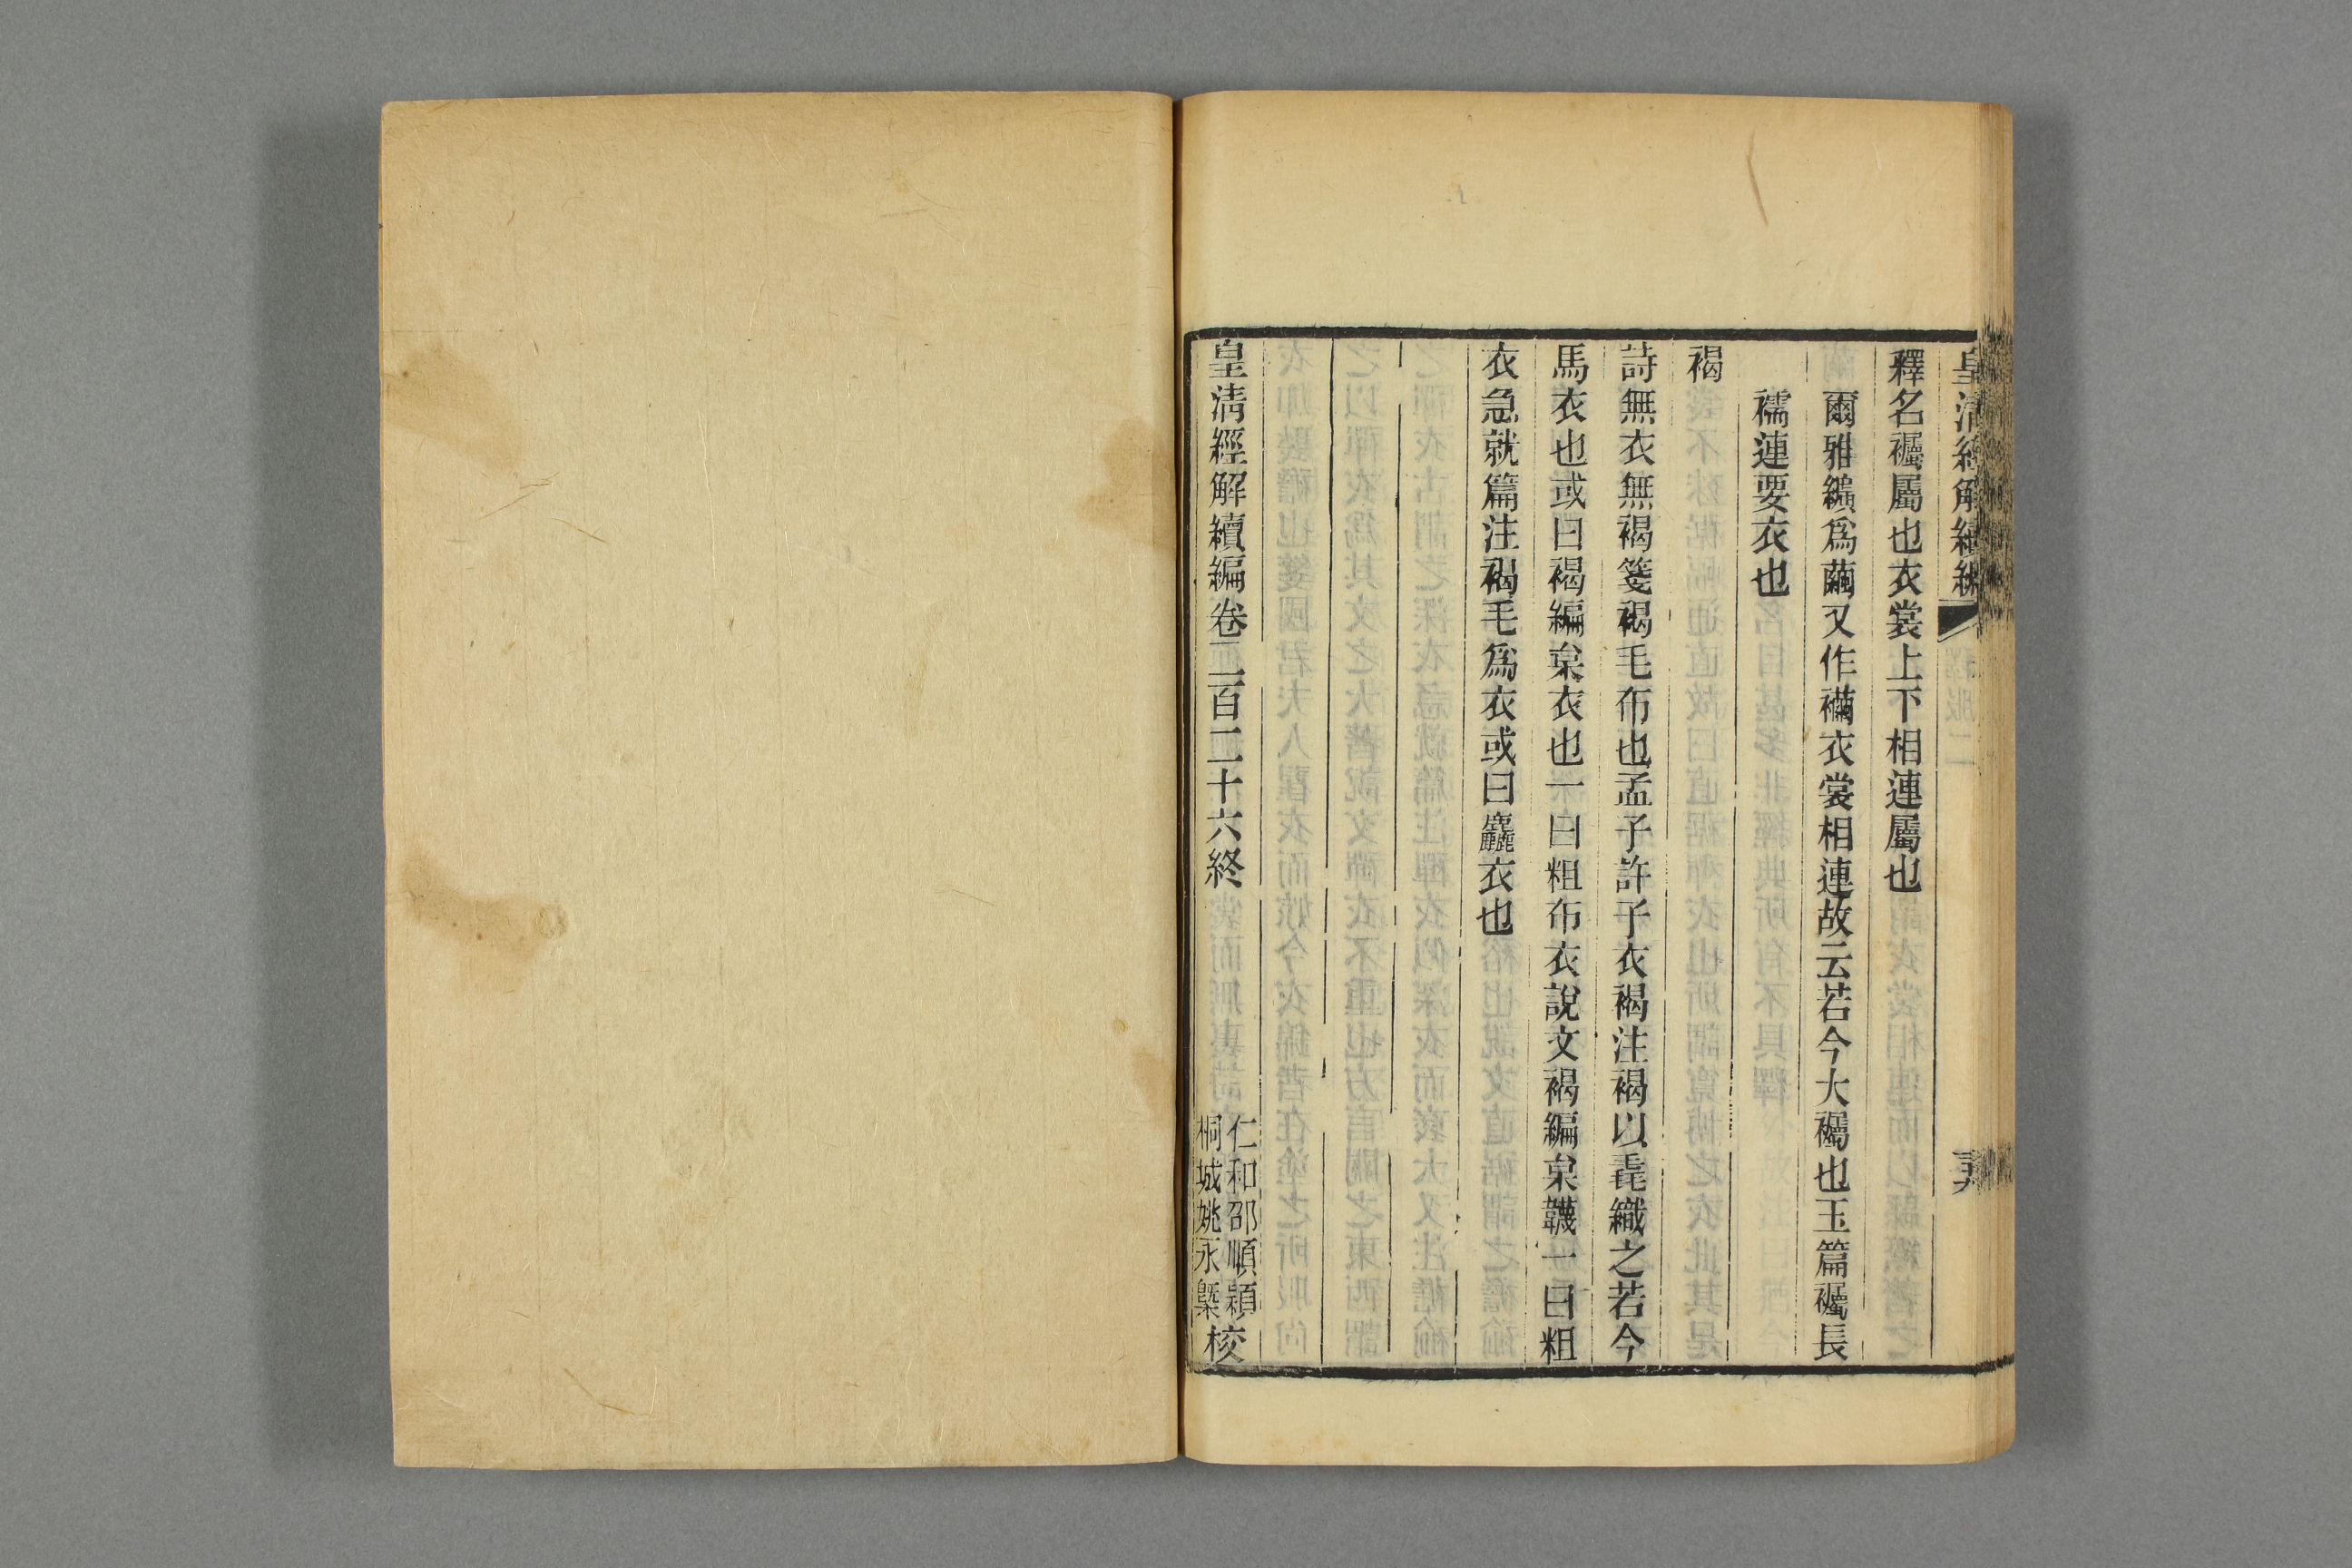 皇清經解續編
釋名襡屬也衣裳上下相連屬也
爾雅纊爲繭又作襺衣裳相連故云若今大襡也玉篇襡長
襦連要衣也
褐
詩無衣無褐箋褐毛布也孟子許子衣褐注褐以毳織之若今
馬衣也或曰褐編枲衣也一曰粗布衣說文褐編枲韤一曰粗
衣急就篇注褐毛爲衣或曰麤衣也
皇清經解續編卷二百二十六終
仁和邵順穎
桐城姚永㮣校